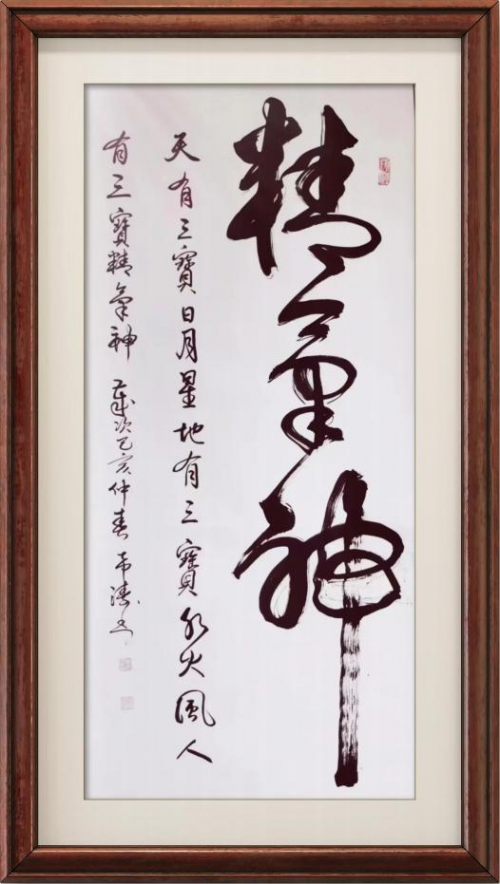 精氣神
天有三寶日月星地有三寶水火風人
有三寶精氣神 歲次己亥仲春